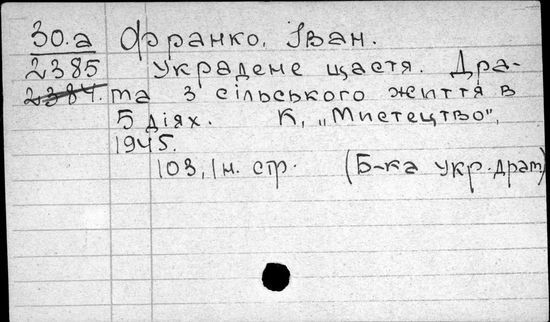 30.а Франко, Іван.
2385 Украдене щастя. Дра-
2384. та з сільського життя в
5 діях. К, „Мистецтво",
1945.
103, 1 н. стр. (Б-ка укр. драт)